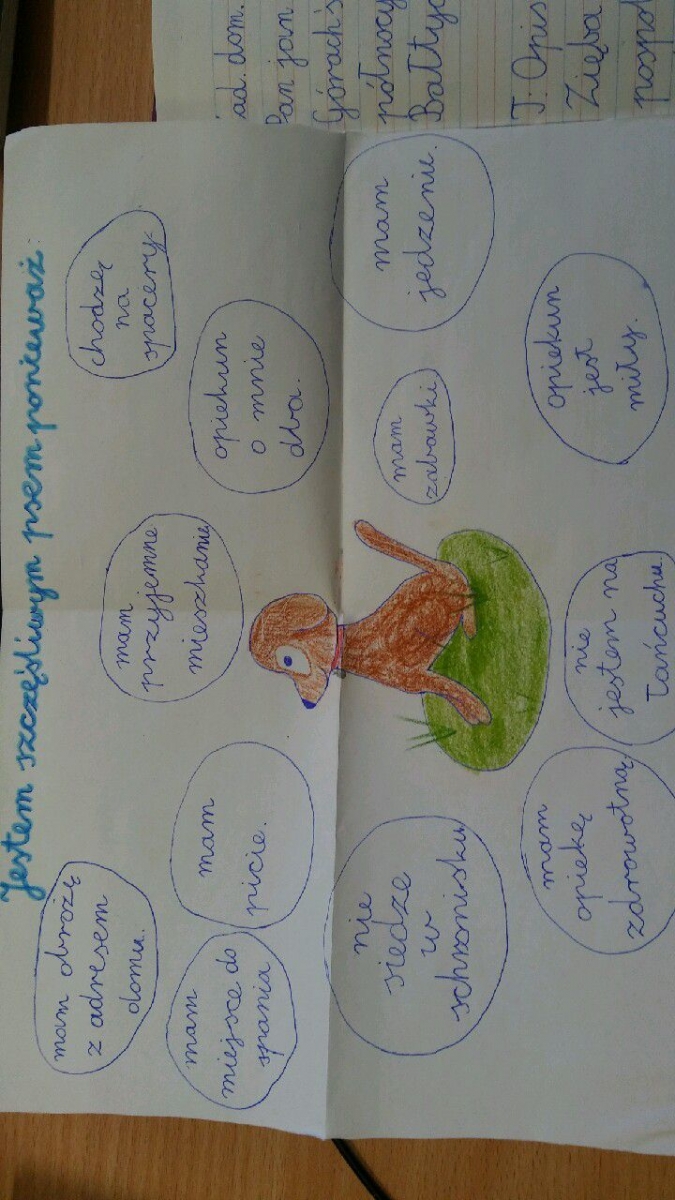 Jestem szczęśliwym psem ponieważ:
mam obrożę
z adresem
domu.
mam
przyjemne
mieszkanie
chodzę
na
spacery.
mam
miejsce do
spania
mam
picie.
opiekun
o mnie
dba.
nie
siedze
w
schronisku
mam
zabawki
mam
jedzenie.
mam
opiekę
zdrowotną
nie
jestem na
łańcuchu
opiekun
jest
miły.
ad. dom.
Pan jan
Górach
północy
Bałtyc
T: Opis
Zięba
pospol